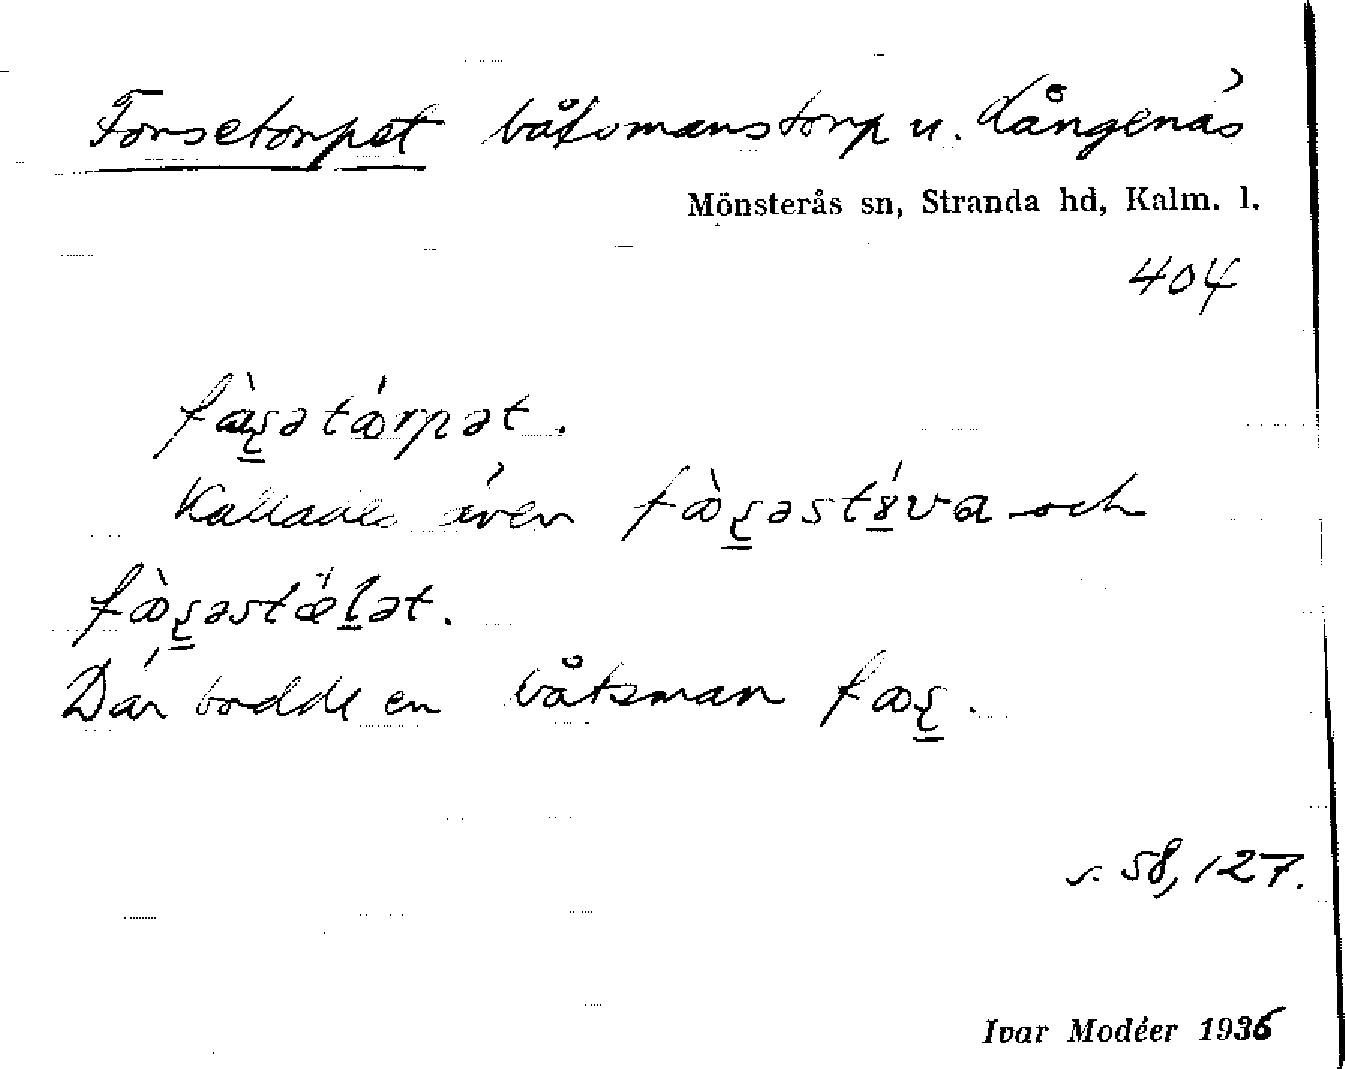 Forsetorpet båtsmanstorp u. Långenäs
Mönsterås sn, Stranda hd, Kalm. l.
404
fòʂətǿrpət.
Kallades även fòʂəstúva och
fòʂəstǽlət.
Där bodde en båtsman foʂ.
s. 58, 127.
Ivar Modéer 1936